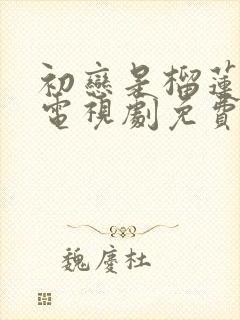 初戀是榴蓮
電視劇免費
魏慶杜